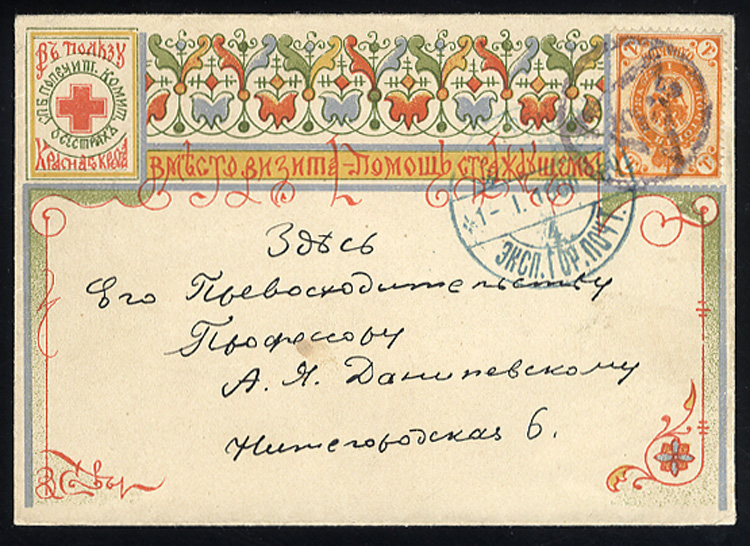 Въ пользу
СПБ ПОПЕЧИТ. КОМИТ.
О СЕСТРАХЪ
Краснаго Креста
Вмѣсто визита-помощь страждущему
*1- I.
4
ЭКСП. ГОР. ПОЧТ.
Здѣсь
Его Превосходительству
Профессору
А. Я. Данилевскому
Нижегородская 6.